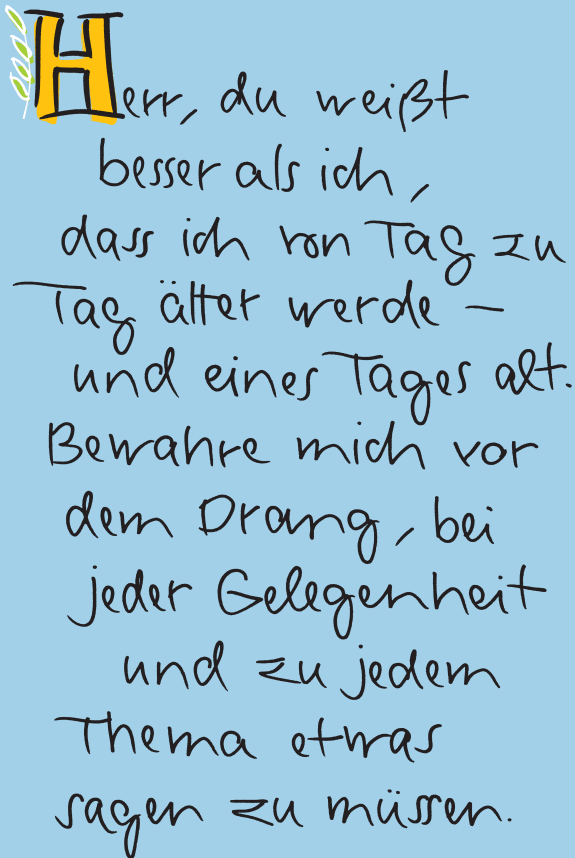 Herr, du weißt
besser als ich,
dass ich von Tag zu
Tag älter werde –
und eines Tages alt.
Bewahre mich vor
dem Drang, bei
jeder Gelegenheit
und zu jedem
Thema etwas
sagen zu müssen.